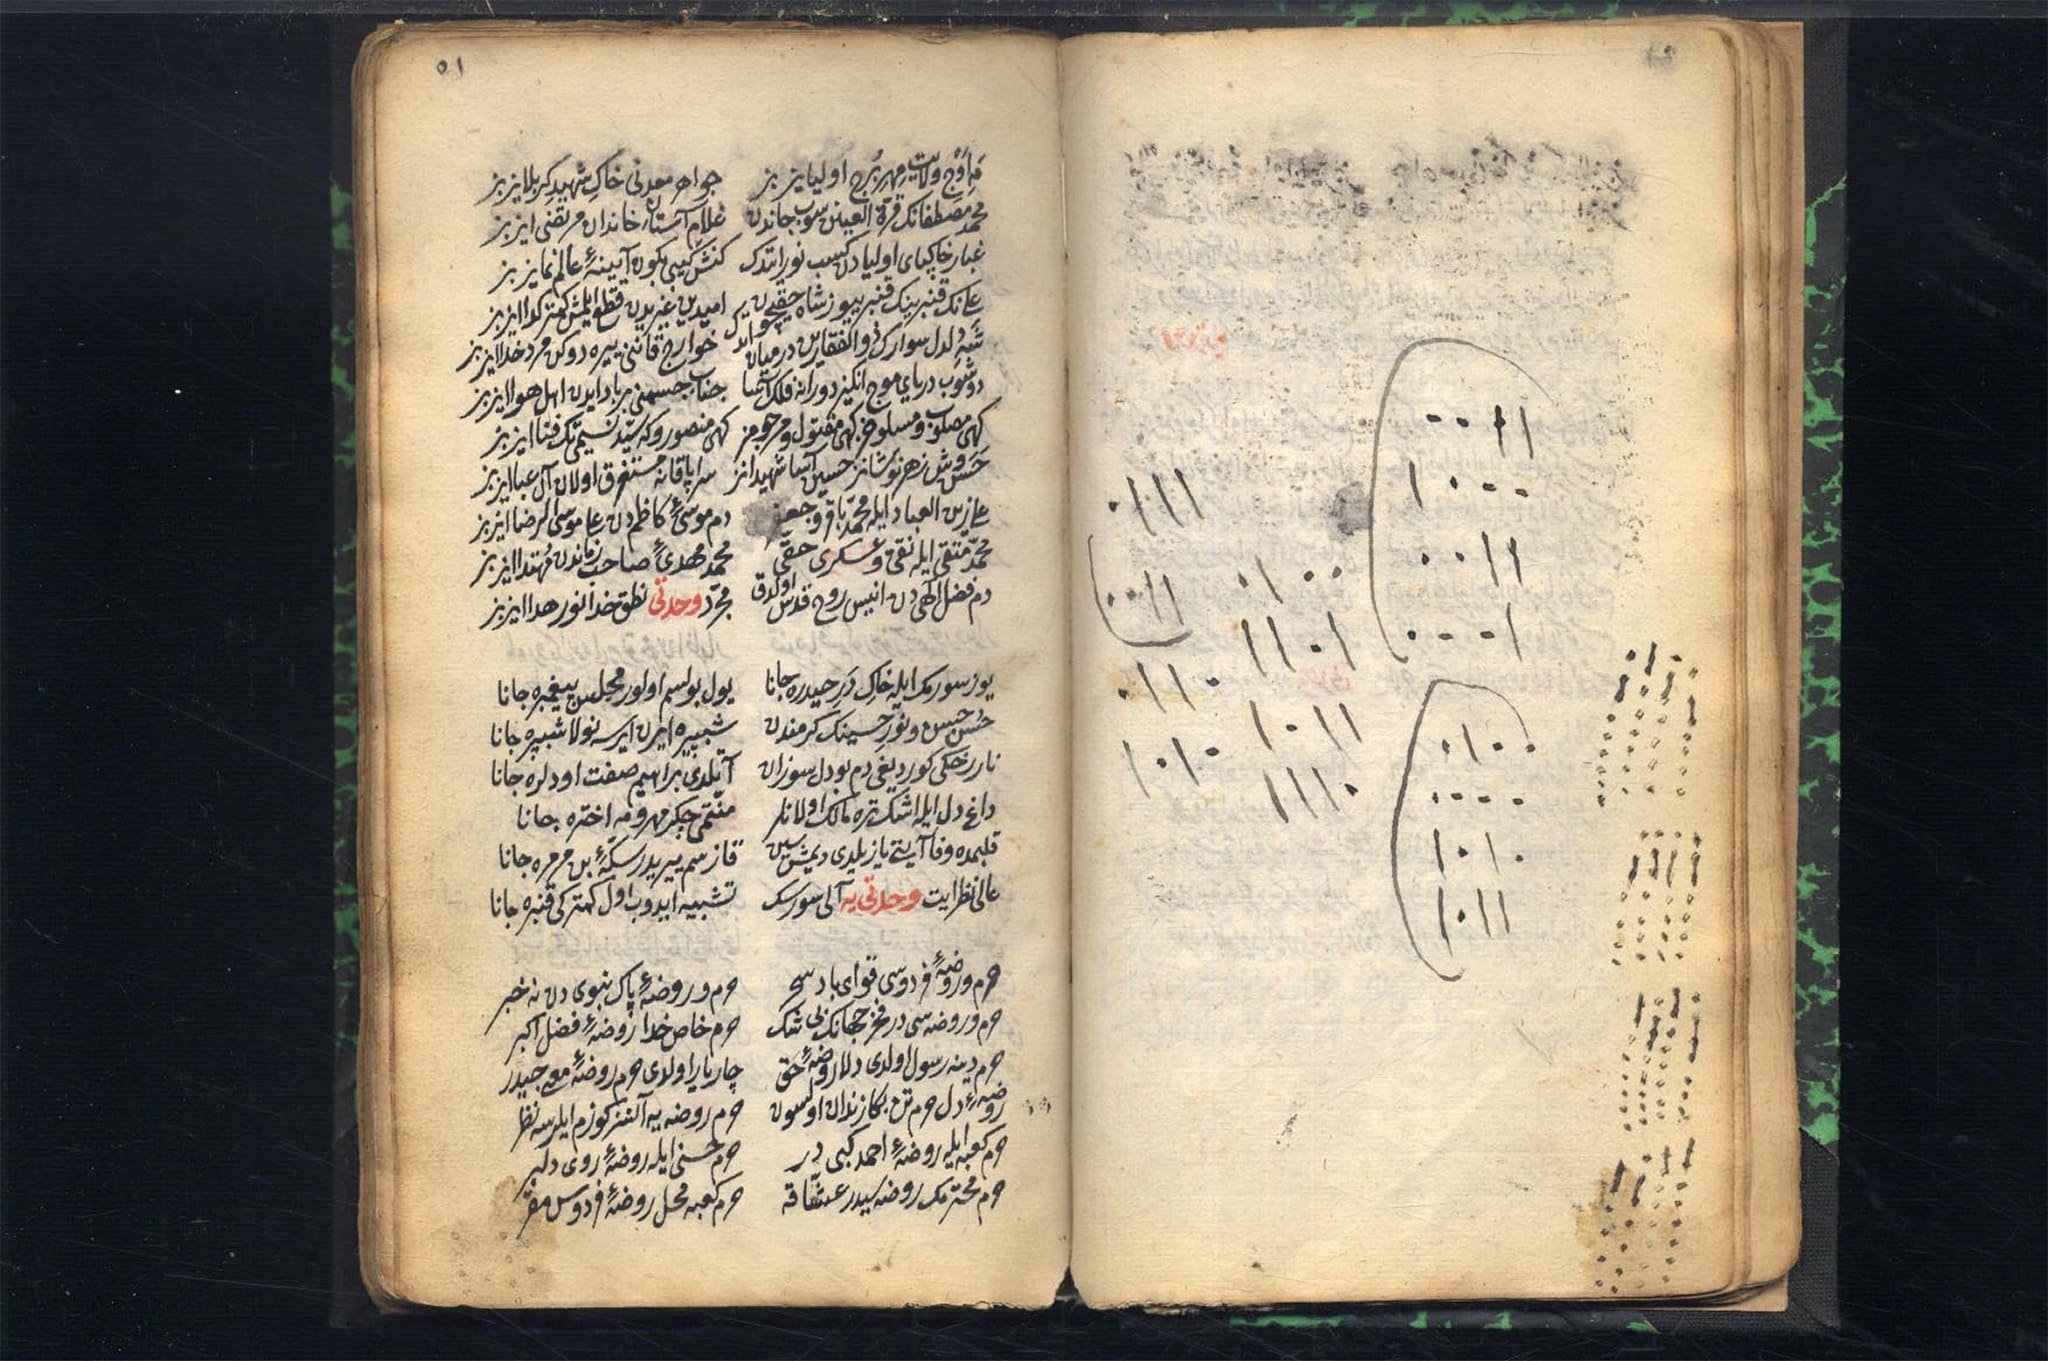 ٥١
مه اوج ولایت مهر برج اولیایز بز جواهر معدنی خاک شهید کربلایز بز
محمد مصطفانک قرة العینن سوب جاندن غلام آستان خاندان مرتضی ایز بز
غبار خاکپای اولیادن کسب نور ایتدک کنش کیبی بکون آیینهٔ عالم نمایز بز
علی نک قنبرینک قنبرییوز شاه امیدین غیریدن قطع ایلمش کمتر کدا ایز بز
شه دلدل سوارک ذو الفقارین در میان خوارج قاننی ییره دوکن مرد خدا ایز بز
دوشوب دریای موج انکیز دورانه فلک آسا جسمنی برباد ایدن اهل هوا ایز بز
کهی مصلوب و مسلوخز کهی مقتول و مرجومز کهی منصور و که سید نسیمی تک فنا ایز بز
حسن وش زهر نوشانز حسین آسا شهیدانز سراپا قانه مستغرق اولان آل عبا ایز بز
علی زین العباد ایله محمد باقر و جعفر دم موسیٔ کاظم دن علی موسی الرضا ایز بز
محمد متقی ایله نقی و عسکری حقی محمد مهدیٔ صاحب زماندن مهتدا ایز بز
دم فضل الهی دن انیس روح قدس اولدق مجرد وحدتی نطق خدا نور هدا ایز بز
یوز سورمک ایله خاک در حیدره جانا یول بولسم اولور محفل پیغمبره جانا
حسن حسن و نور حسینک کرمندن شبیره ایرن ایرسه نولا شبره جانا
نار رخکی کوردیغی دم بو دل سوزان آتلدی براهیم صفت اودلره جانا
داغ دل ایله اشک تره مالک اولانلر منتمی چکر مهر و مه اختره جانا
قلبمده وفا آیتی یازیلدی دیمشسین قازسم ییریدر سکهٔ بن مرمره جانا
عالی نظر ایت وحدتی یه آلی سورسک تشبیه ایدوب اول کمترکی قنبره جانا
حرم و روضهٔ فردوسی قو ای باد سحر حرم و روضهٔ پاک نبوی دن نه خبر
حرم و روضه سی در فخر جهانک بی شک حرم خاص خدا روضهٔ فضل اکبر
حرم دینه رسول اولدی دلا روضهٔ حق چار یار اولدی حرم روضهٔ مع حیدر
روضهٔ دل حرم تن بکا زندان اولسون حرم روضه یه آنسز کوزم ایلرسه نظر
حرم کعبه ایله روضهٔ احمد کبی در حرم حسنی ایله روضهٔ روی دلبر
حرم محترمک روضه سیدر عشاقه حرم کعبه محل روضهٔ فردوس مقر